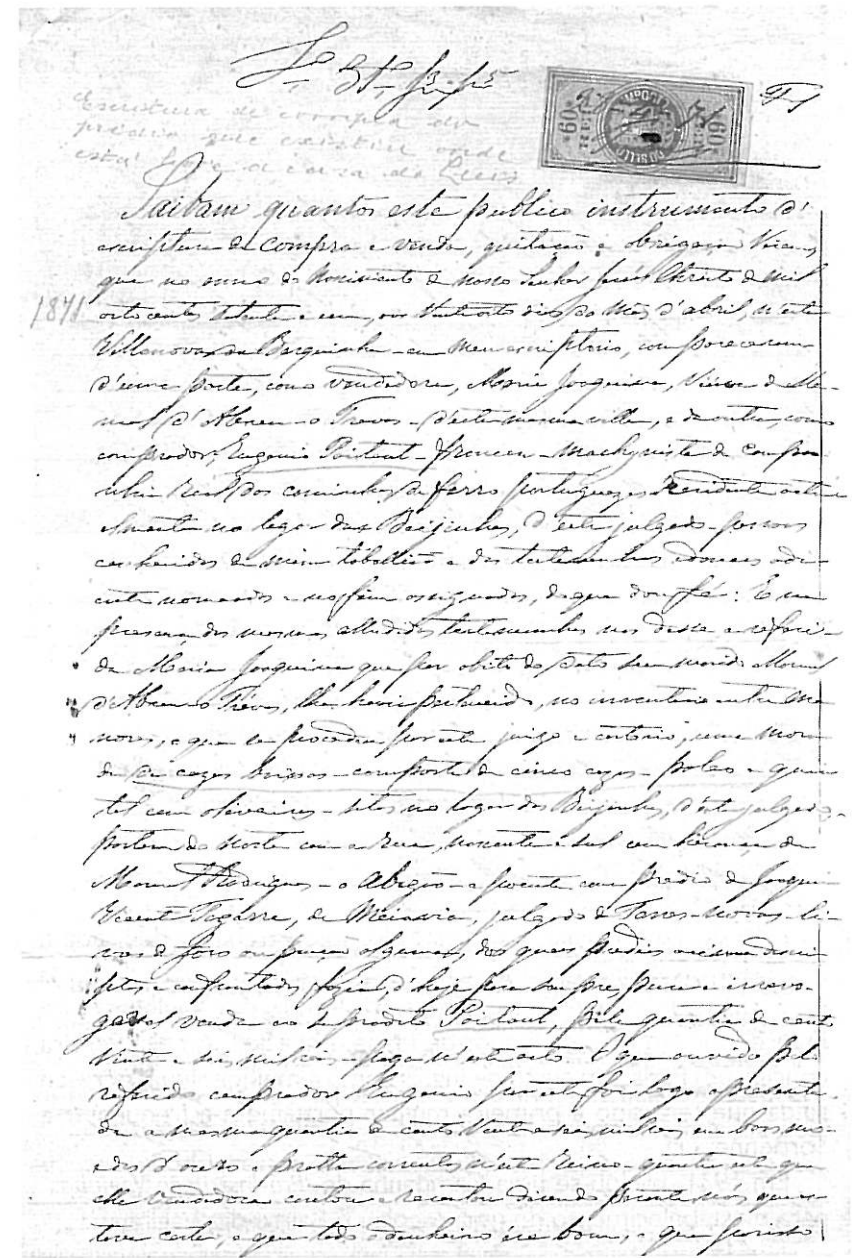 Escritura de compra do
predio que existiu onde
está hoje a casa da
60 REIS IMPOSTO DO SELLO 60 REIS
Saibam quantos este publico instrumento d'
escriptura de compra e venda, quitação e obrigação virem,
que no anno do Nascimento de Nosso Senhor Jesus Christo de mil
1871
oitocentos setenta e um, aos vinte oito dias do mes d'abril, n'esta
Villa nova da Barquinha em meu escriptorio, compareceram
d'uma parte, como vendedora, Maria Joaquina, Viuva de Ma-
noel d'Abreu o Trovas d'esta mesma villa, e da outra, como
comprador, Eugenio Poitout Francez Machynista da compa-
nhia Real dos caminhos de ferro portuguezes residente actu-
almente no logar das d'este julgado pessoas
conhecidas de mim tabellião e das testemunhas idoneas adi-
ante nomeadas e no fim assignadas, do que dou fé: E na
presença das mesmas alludidas testemunhas nos disse a referi-
da Maria Joaquina que por obito do dito seu marido Manoel
d'Abreu o Trovas, lhe havia pertencido, no inventario entre me-
nores, a que se procedeu por este juizo e cartorio, uma mora-
da de cazas baixas composta de cinco cazas pateo e quin-
tal com oliveiras sitos no logar das d'este julgado,
partem do Norte com a Rua, nascente e sul com herança de
Manoel Rodrigues o Abegão e poente com predio de Joaquim
Vicente de Meiavia, julgado de Torres Novas li-
vres de foro ou pensão alguma, dos quaes predios acima descri-
ptos e confrontados fazia, d'hoje para sempre, pura e irrevo-
gavel venda ao supradito Poitout, pela quantia de cento
vinte e seis mil reis paga n'este acto. O que ouvido pelo
referido comprador Eugenio por este foi logo apresenta-
da a mesma quantia de cento vinte e seis mil reis em boas mo-
edas d'ouro e pratta correntes n'este Reino quantia esta que
elle vendedora contou e recontou dizendo perante nós que es-
tava certa, e que todo o dinheiro era bom, e que por isto